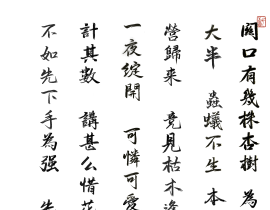 闗口有幾株杏樹 為
大半 蟲蟻不生 本
營歸來 竟見枯木逢
一夜綻開 可憐可愛
計其數 講甚么惜花
不如先下手為强 生